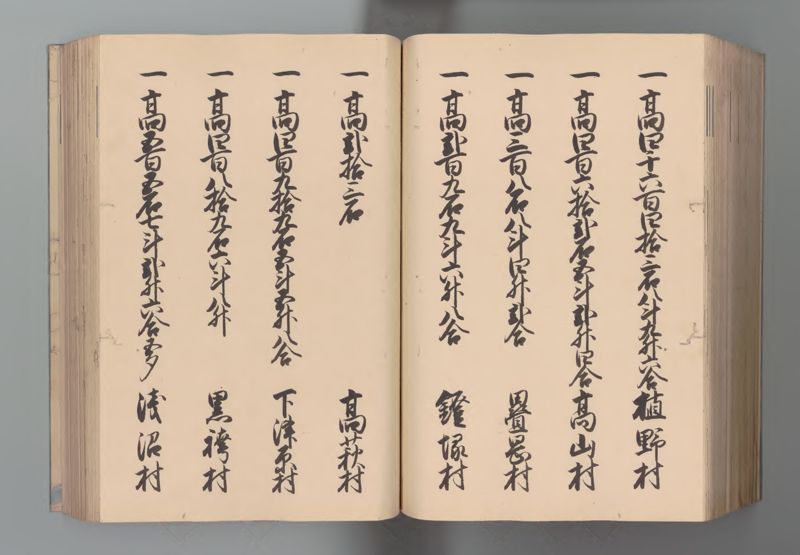 一 高四千六百四拾三石八斗九升六合 植野村
一 高四百六拾弐石五斗弐升四合 高山村
一 高三百八石八斗四升弐合 疊岡村
一 高弐百九石九斗六升八合 鐙塚村
一 高弐拾三石 高萩村
一 高四百九拾九石五斗五升八合 下津原村
一 高四百八拾九石六斗八升 黒袴村
一 高五百五石七斗弐升六合五夕 浅沼村